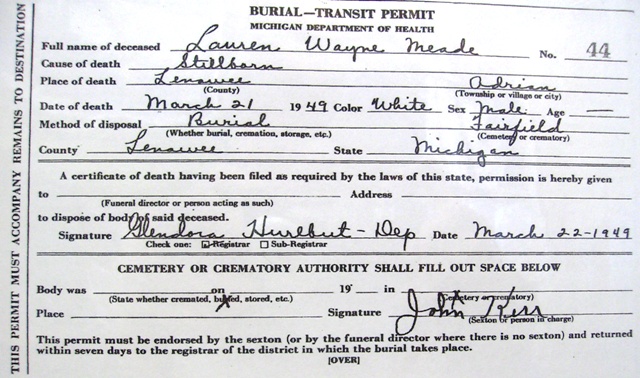 BURIAL—TRANSIT PERMIT
MICHIGAN DEPARTMENT OF HEALTH
Full name of deceased Lauren Wayne Meade No. 44
Cause of death Stillborn
Place of death Lenawee Adrian
(County) (Township or village or city)
Date of death March 21 1949 Color White Sex Male Age
Method of disposal Burial Fairfield
(Whether burial, cremation, storage, etc.) (Cemetery or crematory)
County Lenawee State Michigan
A certificate of death having been filed as required by the laws of this state, permission is hereby given
to Address
(Funeral director or person acting as such)
to dispose of body of said deceased.
Signature Glendora Hurlbut - Dep Date March 22-1949
Check one: Registrar Sub-Registrar
CEMETERY OR CREMATORY AUTHORITY SHALL FILL OUT SPACE BELOW
Body was on 19 in
(State whether cremated, buried, stored, etc.) (Cemetery or crematory)
Place Signature John Kerr
(Sexton or person in charge)
This permit must be endorsed by the sexton (or by the funeral director where there is no sexton) and returned
within seven days to the registrar of the district in which the burial takes place.
[OVER]
THIS PERMIT MUST ACCOMPANY REMAINS TO DESTINATION